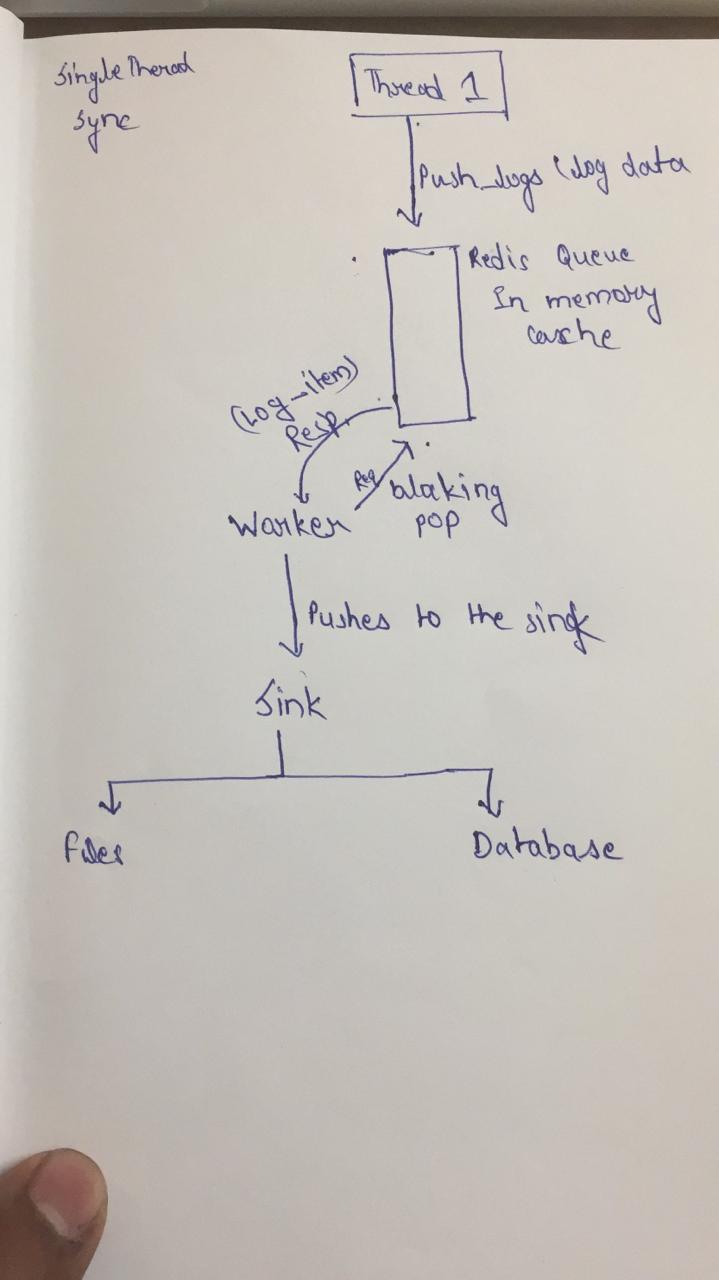 Single Therad
Sync
Thread 1
Push_logs (log data
Redis Queue
In memory
cache
(Log-item)
Resp.
Req
blaking
pop
Worker
Pushes to the sink
Sink
Files
Database